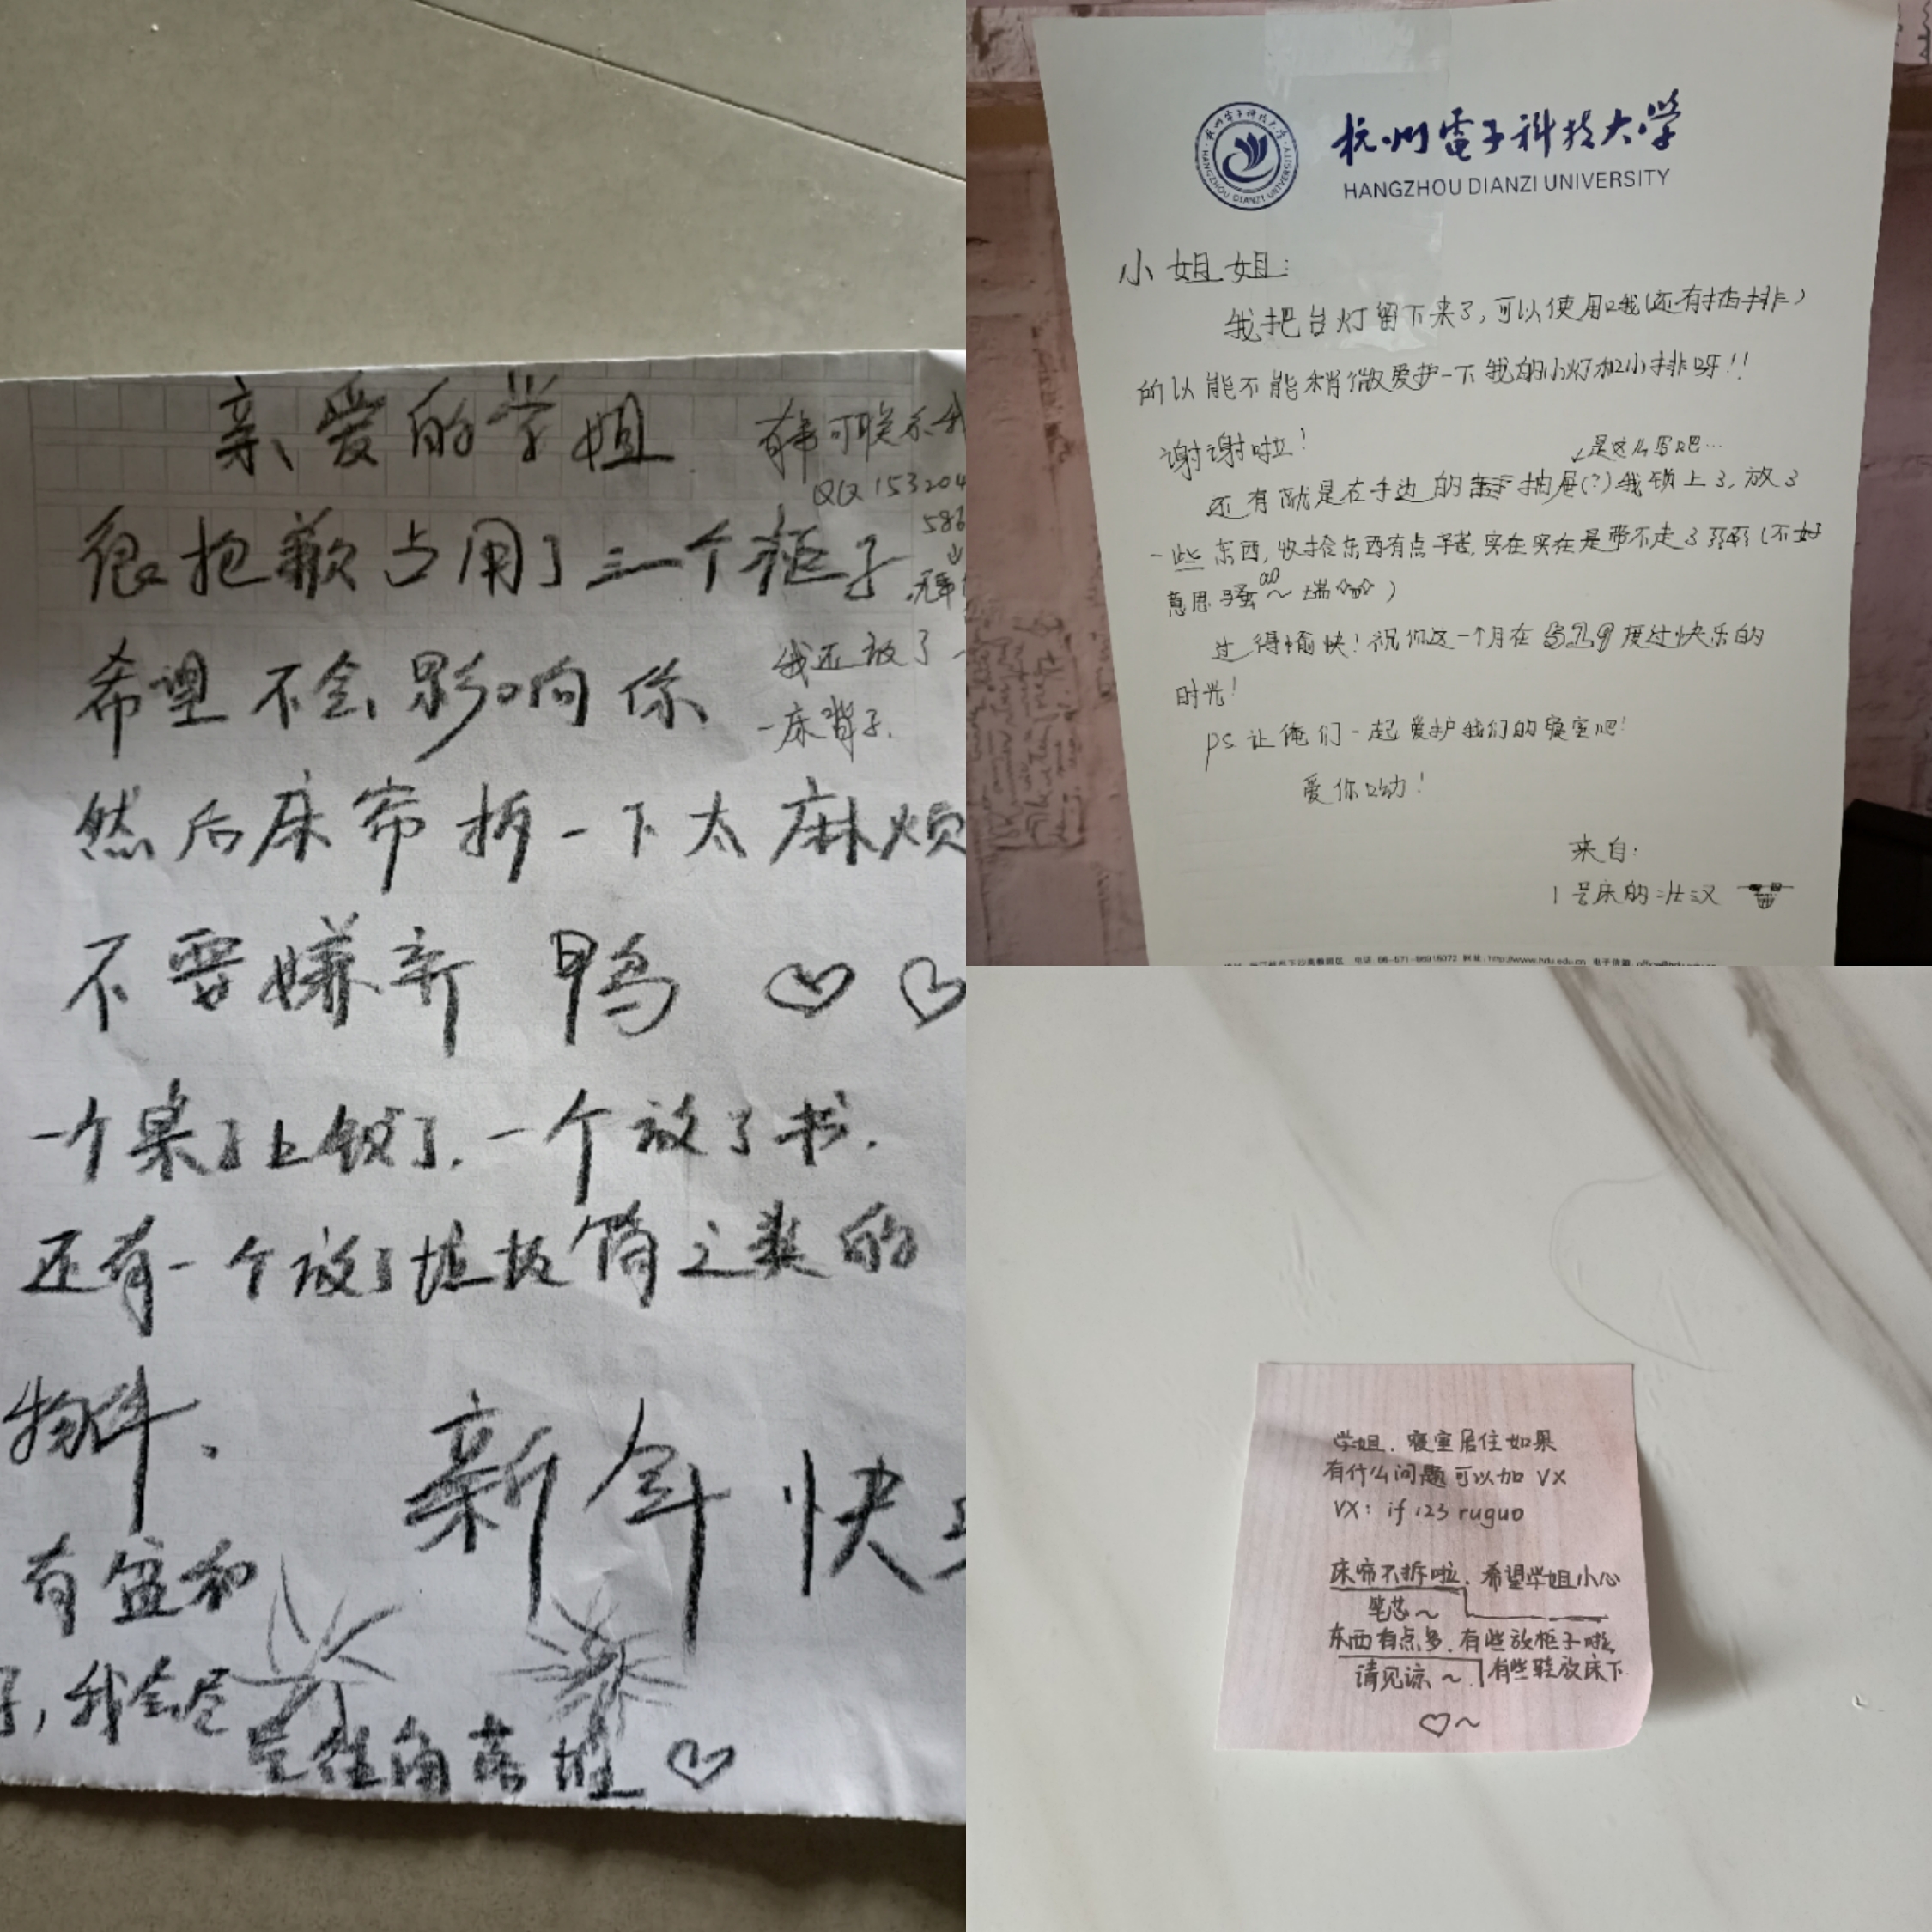 亲爱的学姐
有事可联系我
QQ 153204
586
很抱歉占用了三个柜子
希望不会影响你
我还放了一
一床背子.
然后床帘拆一下太麻烦
不要嫌弃 鸭
一个桌子上锁了.一个放了书.
还有一个放了垃圾筒之类的
物件.
新年快
有盆和
,我会尽
量往角落堆
杭州電子科技大学
HANGZHOU DIANZI UNIVERSITY
小姐姐:
我把台灯留下来了,可以使用哦(还有插排)
所以能不能稍微爱护一下我的小灯和小排呀!!
谢谢啦!
是这么写吧...
还有就是在手边的抽屉(?)我锁上了,放了
一些东西,收拾东西有点辛苦,实在实在是带不走了(不好
意思骚~瑞)
过得愉快!祝你这一个月在529度过快乐的
时光!
ps 让俺们一起爱护我们的寝室吧!
爱你呦!
来自:
1号床的壮汉
学姐.寝室居住如果
有什么问题可以加 VX
VX: if 123 ruguo
床帘不拆啦.希望学姐小心
笔芯~
东西有点多.有些放柜子啦
请见谅~.有些鞋放床下.